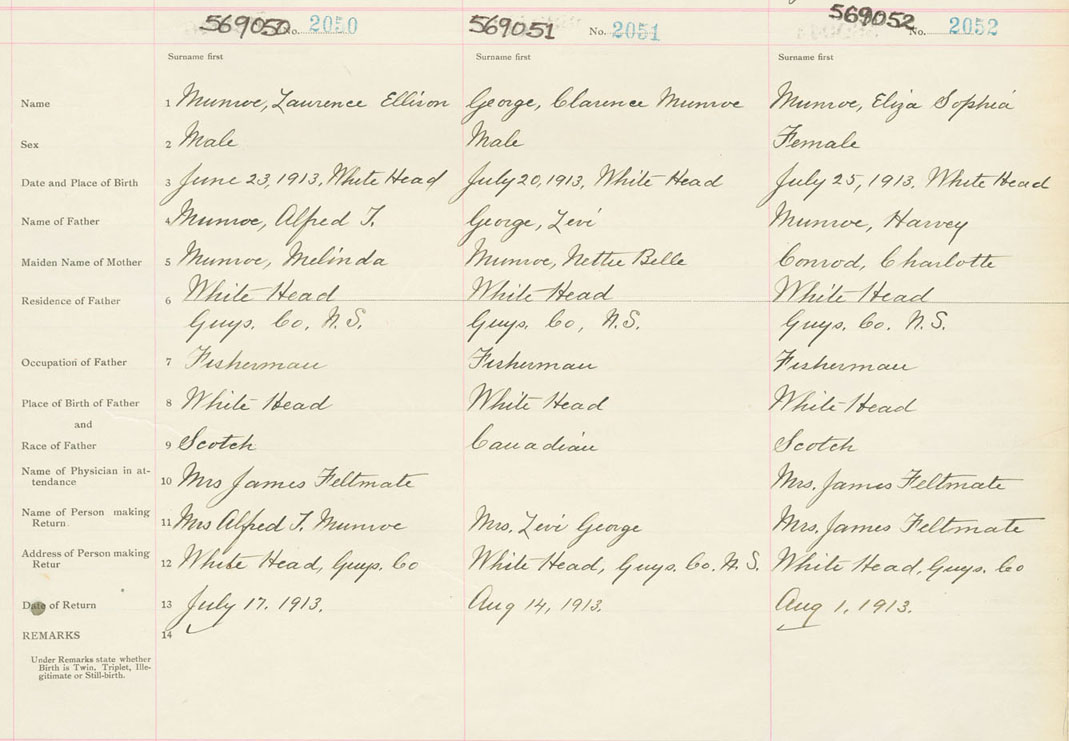 569050 No. 2050 569051 No. 2051 569052 No. 2052
Surname first Surname first Surname first
Name 1 Munroe, Laurence Ellison George, Clarence Munroe Munroe, Eliza Sophia
Sex 2 Male Male Female
Date and Place of Birth 3 June 23, 1913, White Head July 20, 1913, White Head July 25, 1913, White Head
Name of Father 4 Munroe, Alfred T. George, Levi Munroe, Harvey
Maiden Name of Mother 5 Munroe, Melinda Munroe, Nettie Belle Conrod, Charlotte
Residence of Father 6 White Head White Head White Head
Guys. Co. N.S. Guys. Co, N.S. Guys. Co. N.S.
Occupation of Father 7 Fisherman Fisherman Fisherman
Place of Birth of Father 8 White Head White Head White Head
and
Race of Father 9 Scotch Canadian Scotch
Name of Physician in at-
tendance 10 Mrs James Feltmate Mrs. James Feltmate
Name of Person making
Return 11 Mrs Alfred T. Munroe Mrs. Levi George Mrs. James Feltmate
Address of Person making
Retur 12 White Head, Guys. Co White Head, Guys. Co. N.S. White Head, Guys. Co
Date of Return 13 July 17. 1913. Aug 14, 1913. Aug 1, 1913.
REMARKS 14
Under Remarks state whether
Birth is Twin, Triplet, Ille-
gitimate or Still-birth.